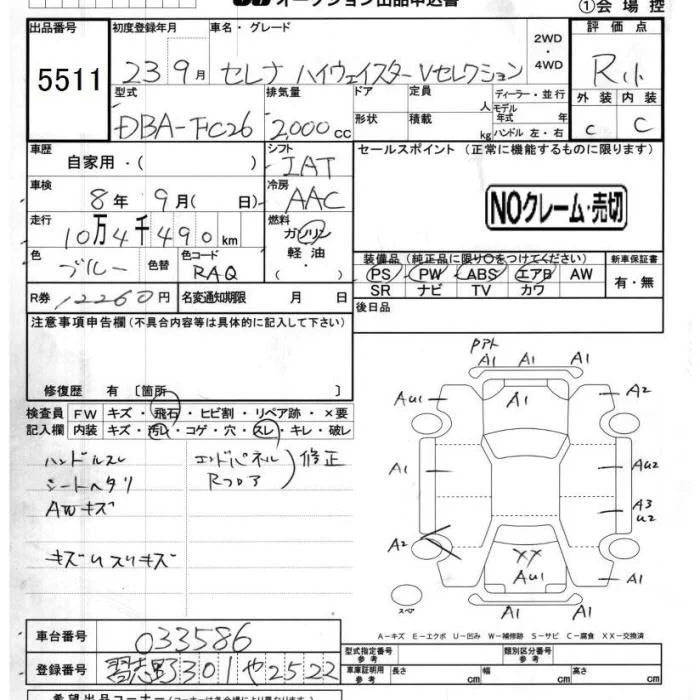 オークション出品申込書
①会場控
出品番号 初度登録年月 車名・グレード 評価点
5511 23 9月 セレナ ハイウェイスター Vセレクション 2WD・4WD R小
型式 排気量 ドア 定員 ディーラー・並行 外装 内装
DBA-FC26 2,000cc 形状 積載 人 kg モデル年式 年 ハンドル 左・右 C C
車歴 自家用・( ) シフト IAT セールスポイント (正常に機能するものに限ります)
車検 8年 9月( 日) 冷房 AAC NOクレーム・売切
走行 10万4千490km 燃料 ガソリン 軽油 ( ・ )
色 ブルー 色替 色コード RAQ
装備品 (純正品に限り○をつけてください) 新車保証書
PS PW ABS エアB AW 有・無
SR ナビ TV カワ
R券 12260円 名変通知期限 月 日 後日品
注意事項申告欄(不具合内容等は具体的に記入して下さい)
修復歴 有 〔箇所 〕
検査員 FW キズ・飛石・ヒビ割・リペア跡・×要
記入欄 内装 キズ・汚レ・コゲ・穴・スレ・キレ・破レ
ハンドルスレ エンドパネル
シートヘタリ Rフロア 修正
AWキズ
キズUスリキズ
Pアト
A1 A1 A1
AU1 A1 A2
A1 AU2
A3
U2
A2 XX
AU1 A1
スペア A1 A1
A-キズ E-エクボ U-凹み W-補修跡 S-サビ C-腐食 XX-交換済
車台番号 033586
登録番号 習志野301や2522
型式指定番号 参考 類別区分番号 参考
車庫証明用 参考 長さ cm 幅 cm 高さ cm
希望出品コーナー(コーナーは各会場により異なります。)